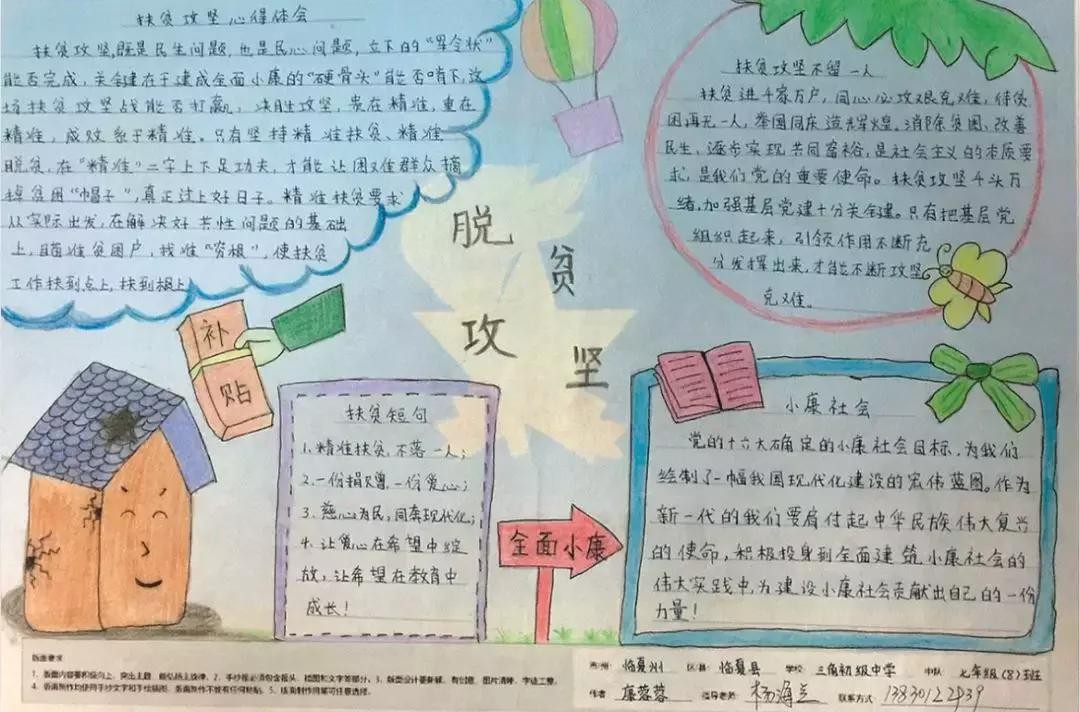 扶贫攻坚心得体会
扶贫攻坚,既是民生问题,也是民心问题,立下的"军令状"
能否完成,关键在于建成全面小康的"硬骨头"能否啃下,这
场扶贫攻坚战能否打赢;决胜攻坚,贵在精准,重在
精准,成败系于精准。只有坚持精准扶贫、精准
脱贫,在"精准"二字上下足功夫,才能让困难群众摘
掉贫困"帽子",真正过上好日子。精准扶贫要求
从实际出发,在解决好共性问题的基础
上,瞄准贫困户,找准"穷根",使扶贫
工作扶到点上,扶到根上
扶贫攻坚不留一人
扶贫进千家万户,同心必攻艰克难,使贫
困再无一人,举国同庆造辉煌。消除贫困、改善
民生,逐步实现共同富裕,是社会主义的本质要
求,是我们党的重要使命。扶贫攻坚千头万
绪,加强基层党建十分关键。只有把基层党
组织起来,引领作用不断充
分发挥出来,才能不断攻坚
克难。
脱
贫
攻
坚
补
贴
扶贫短句
1.精准扶贫,不落一人;
2.一份捐赠,一份爱心;
3.慈心为民,同奔现代化;
4.让爱心在希望中绽
放,让希望在教育中
成长!
全面小康
小康社会
党的十六大确定的小康社会目标,为我们
绘制了一幅我国现代化建设的宏伟蓝图。作为
新一代的我们要肩付起中华民族伟大复兴
的使命,积极投身到全面建筑小康社会的
伟大实践中,为建设小康社会贡献出自己的一份
力量!
版面要求
1、版面内容要积极向上,突出主题,能弘扬主旋律。2、手抄报必须包含报头、插图和文字等部分。3、版型设计要新颖,有创意,图片清晰,字迹工整。
4、版面制作均使用手抄文字和手绘插图,版面制作不能有任何粘贴。5、版头制作用笔可任意选择。
市州:临夏州 区县:临夏县 学校:三角初级中学 中队:七年级(8)班
作者:康蓉蓉 指导老师: 联系方式:13830122439